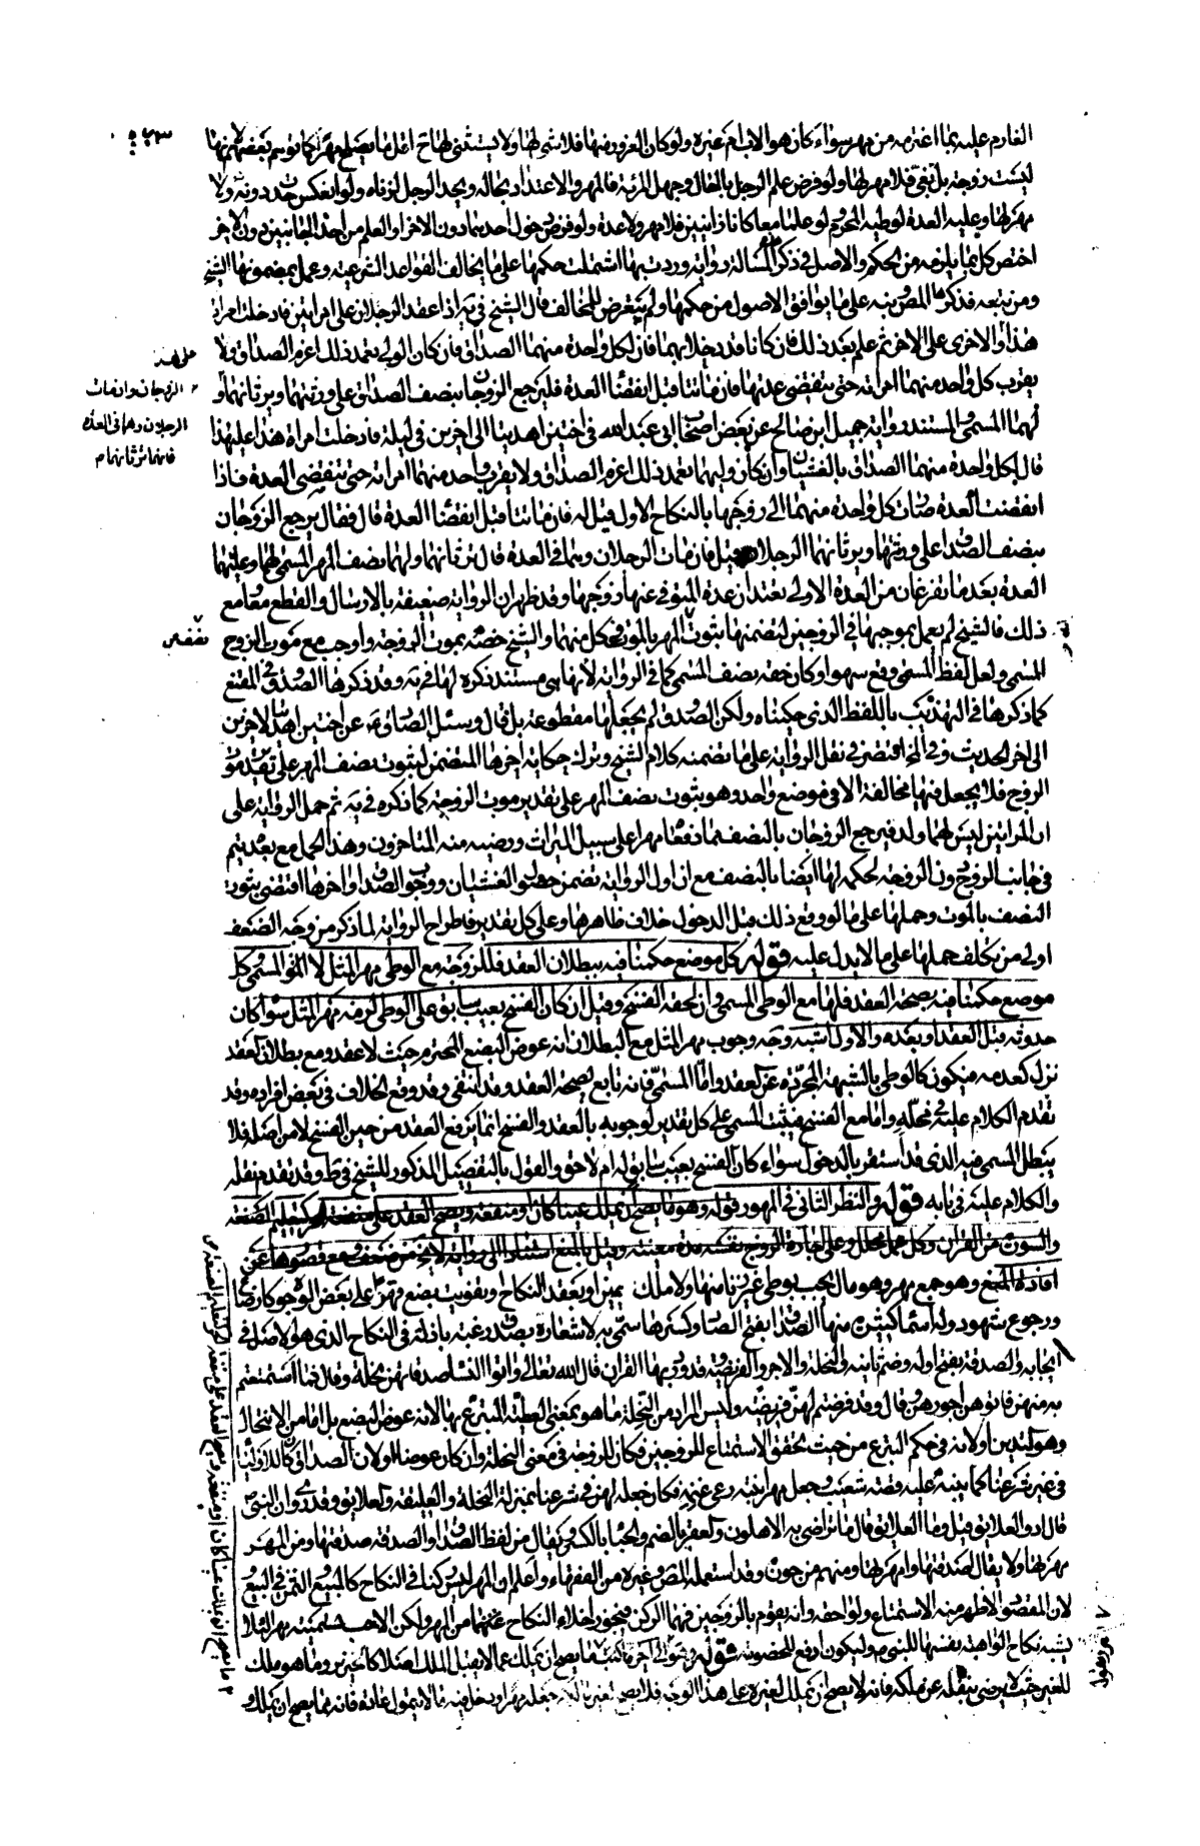 الغارم عليه بما اغترمه من مهر سواء كان هو الاب ام غيره ولو كان الغرور منها فلا شئ لها ولا يستثنى لها ح اقل ما يصلح مهرا كما توهم بعضهم لانها
ليست زوجة بل بغى فلا مهر لها ولو فرض علم الرجل بالحال وجهل المرأة فالمهر والاعتداد بحاله ويحد الرجل لزناه ولو انعكس حدت دونه ولا
مهر لها وعليه العدة لوطيه المحترم ولو علما معا كانا زانيين فلا مهر ولا عدة ولو فرض دخول احدهما دون الاخر او العلم من احد الجانبين دون الاخر
اختص كل بما يلزمه من الحكم والاصل في ذكر المسألة رواية وردت بها اشتملت حكمها على ما يخالف القواعد الشرعية وعمل بمضمونها الشيخ
ومن تبعه فذكر المص ما نبه على ما يوافق الاصول من حكمها ولم يتعرض للمخالف قال الشيخ في ية اذا عقد الرجلان على امرأتين فادخلت امرأة
هذا والاخرى على الاخر ثم علم بعد ذلك فان كانا قد دخلا بهما فان لكل واحدة منهما الصداق فان كان الولي تعمد ذلك اغرم الصداق ولا
يقرب كل واحد منهما امرأته حتى تنقضي عدتها فان ماتتا قبل انقضاء العدة فليرجع الزوجان بنصف الصداق على ورثتهما ويرثانهما و
لهما المسمى والمستند رواية جميل ابن صالح عن بعض اصحاب ابي عبد الله في اختين اهديتا الى اخوين في ليلة فادخلت امرأة هذا على هذا
قال لكل واحدة منهما الصداق بالغشيان وان كان وليهما تعمد ذلك اغرم الصداق ولا يقرب واحد منهما امرأته حتى تنقضي العدة فاذا
انقضت العدة صارت كل واحدة منهما الى زوجها بالنكاح الاول قيل له فان ماتتا قبل انقضاء العدة قال فقال يرجع الزوجان
بنصف الصداق على ورثتهما ويرثانهما الرجلان قيل فان مات الرجلان وهما في العدة قال ترثانهما ولهما نصف المهر المسمى لهما وعليهما
العدة بعد ما تفرغان من العدة الاولى تعتدان عدة المتوفى عنها زوجها وقد ظهر ان الرواية ضعيفة بالارسال والقطع معا مع
ذلك فالشيخ لم يعمل بموجبها في الزوجين لتضمنها ثبوت المهر بالموت في كل منهما والشيخ خصه بموت الزوجة واوجب مع موت الزوج
المسمى ولعل لفظ المسمى وقع سهوا وكان حقه نصف المسمى كما في الرواية لانها هي مستند ذكره لها في ية وقد ذكرها الصدوق في المقنع
كما ذكرها في التهذيب باللفظ الذي حكيناه ولكن الصدوق لم يجعلها مقطوعة بل قال وسئل الصادق ع عن اختين اهديتا لاخوين
الى اخر الحديث وفي الخ اقتصر في نقل الرواية على ما تضمنه كلام الشيخ وترك حكاية اخرها المتضمن لثبوت نصف المهر على تقدير موت
الزوج فلا يجعل فيها مخالفة الا في موضع واحد وهو ثبوت نصف المهر على تقدير موت الزوجة كما ذكره في ية ثم حمل الرواية على
ان المرأتين ليس لهما ولد فيرجع الزوجان بالنصف فيما دفعا مهرا على سبيل الميراث ورضيه منه المتاخرون وهذا الحمل مع بعده يتم
في جانب الزوج دون الزوجة لحكمه لها ايضا بالنصف مع ان اول الرواية تضمن حصول الغشيان ووجوب الصداق واخرها اقتضى ثبوت
النصف بالموت وحملها على ما لو وقع ذلك قبل الدخول خلاف ظاهرها وعلى كل تقدير فاطراح الرواية لما ذكر من وجه الضعف
اولى من تكلف حملها على ما لا يدل عليه قوله كل موضع حكمنا فيه ببطلان العقد فللزوجة مع الوطى مهر المثل لا المسمى وكل
موضع حكمنا فيه بصحة العقد فلها مع الوطى المسمى وان لحقه الفسخ وقيل ان كان الفسخ بعيب سابق على الوطى لزمه مهر المثل سواء كان
حدوثه قبل العقد او بعده والاول اشبه وجه وجوب مهر المثل مع البطلان انه عوض البضع المحترم حيث لا عقد ومع بطلان العقد
نزل كعدمه فيكون كالوطى بالشبهة المجردة عن العقد واما المسمى فانه تابع لصحة العقد وقد انتفى وقد وقع الخلاف في بعض افراده وقد
تقدم الكلام عليه في محله واما مع الفسخ فيثبت المسمى على كل تقدير لوجوبه بالعقد والفسخ انما يرفع العقد من حين الفسخ لا من اصله فلا
يبطل المسمى فيه الذي قد استقر بالدخول سواء كان الفسخ بعيب سابق له ام لاحق والقول بالتفصيل المذكور للشيخ في ط وقد تقدم نقله
والكلام عليه في بابه قوله والنظر الثاني في المهور قوله وهو ما يصح ان يملك عينا كان او منفعة ويصح العقد على منفعة الحر كتعليم الصنعة
والسورة من القران وكل عمل محلل وعلى اجارة الزوج نفسه مدة معينة وقيل بالمنع استنادا الى رواية لا تخ من ضعف مع قصورها عن
افادة المنع وهو جمع مهر وهو مال يجب بوطى غير زنا منها ولا ملك يمين او بعقد النكاح او تفويت بضع قهرا على بعض الوجوه كارضاع
ورجوع شهود وله اسماء كثيرة منها الصداق بفتح الصاد وكسرها سمى به لاشعاره بصدق رغبة باذله في النكاح الذي هو الاصل في
ايجابه والصدقة بفتح اوله وضم ثانيه والنحلة والاجر والفريضة وقد ورد بها القران قال الله تعالى واتوا النساء صدقاتهن نحلة وقال فما استمتعتم
به منهن فاتوهن اجورهن وقال وقد فرضتم لهن فريضة وليس المراد من النحلة ما هو بمعنى العطية المتبرع بها لانه عوض البضع بل اما من الانتحال
وهو التدين او لانه في حكم التبرع من حيث تحقق الاستمتاع للزوجين فكان للزوجة في معنى النحلة وان كان عوضا او لان الصداق كان للاولياء
في غير شرعنا كما ينبه عليه قصة شعيب وجعل مهر ابنته رعى غنمه فكان جعله لهن في شرعنا بمنزلة النحلة والعليقة والعلايق وقد روى ان النبي
قال ادوا العلايق قيل وما العلايق قال ما تراضى به الاهلون والعقر بالضم والحباء بالكسر ويقال من لفظ الصداق والصدقة صدقتها ومن المهر
مهرتها ولا يقال اصدقتها وامهرتها ومنهم من جوزه وقد استعمله المص وغيره من الفقهاء واعلم ان المهر ليس ركنا في النكاح كالمبيع والثمن في البيع
لان المقصود الاظهر منه الاستمتاع ولواحقه وانه يقوم بالزوجين فهما الركن فيجوز اخلاء النكاح عنهما من المهر ولكن الاحب تسميته مهر لئلا
يشبه نكاح الواهبة نفسها للنبي ص وليكون ادفع للخصومة قوله ما يصح ان يملك عما لا يقبل الملك اصلا كالخنزير وما هو ملك
للغير حيث لا يرضى بنقله عن ملكه فانه لا يصح ان يملك لغيره على هذا الوجه فلا يصح جعله مهرا ما لا يتمول عادة فانه مما يصح ان يملك و
على هذه
الزوجان وان مات
الرجلان وهما في العدة
فانهما ترثانهما م